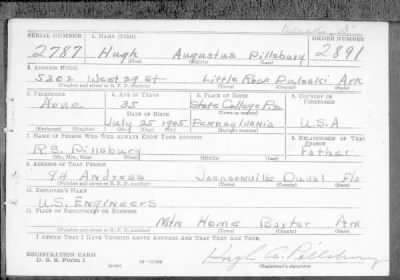 SERIAL NUMBER 1. NAME (Print) ORDER NUMBER
2787 Hugh Augustus Pillsbury 2891
(First) (Middle) (Last)
2. ADDRESS (Print)
5202 West 29 St Little Rock Pulaski Ark
(Number and street or R. F. D. number) (Town) (County) (State)
3. TELEPHONE 4. AGE IN YEARS 5. PLACE OF BIRTH 6. COUNTRY OF CITIZENSHIP
None 35 State College
DATE OF BIRTH (Town or county)
July 25 1905 Pennsylvania U.S.A
(Exchange) (Number) (Mo.) (Day) (Yr.) (State or country)
7. NAME OF PERSON WHO WILL ALWAYS KNOW YOUR ADDRESS 8. RELATIONSHIP OF THAT PERSON
R.S. Pillsbury Father
(Mr., Mrs., Miss) (First) (Middle) (Last)
9. ADDRESS OF THAT PERSON
94 Andress Jacksonville Duval Fla
(Number and street or R. F. D. number) (Town) (County) (State)
10. EMPLOYER'S NAME
U.S. Engineers
11. PLACE OF EMPLOYMENT OR BUSINESS
Mtn Home Baxter Ark
(Number and street or R. F. D. number) (Town) (County) (State)
I AFFIRM THAT I HAVE VERIFIED ABOVE ANSWERS AND THAT THEY ARE TRUE.
REGISTRATION CARD
D. S. S. Form 1 (over) Hugh A. Pillsbury
(Registrant's signature)